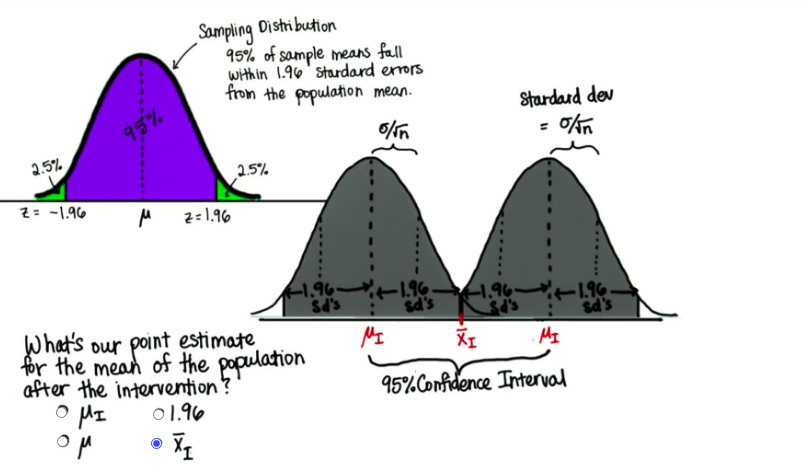 Sampling Distribution
95% of sample means fall
within 1.96 standard errors
from the population mean.
95%
2.5%
2.5%
z = -1.96
μ
z = 1.96
σ/√n
Standard dev
= σ/√n
1.96
sd's
1.96
sd's
1.96
sd's
1.96
sd's
μI
x̄I
μI
95% Confidence Interval
What's our point estimate
for the mean of the population
after the intervention?
μI
1.96
μ
x̄I